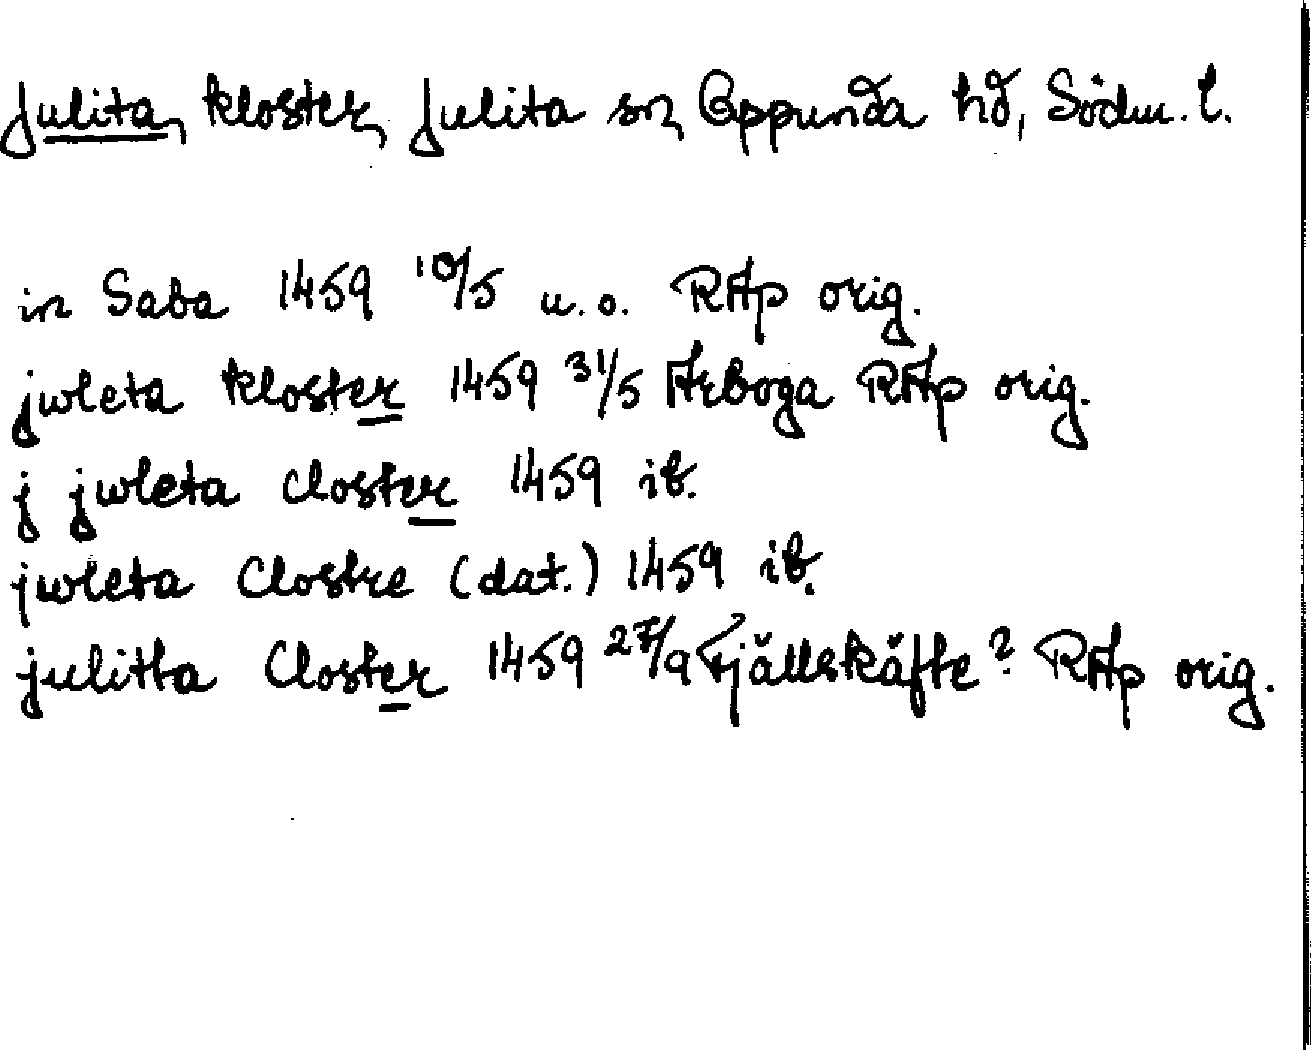 Julita, kloster, Julita sn, Oppunda hd, Södm. l.
in Saba 1459 10/5 u.o. RAp orig.
juleta kloster 1459 31/5 Arboga RAp orig.
j juleta closter 1459 ib.
juleta Clostre (dat.) 1459 ib.
julitta Closter 1459 27/9 Fjällskäfte? RAp orig.